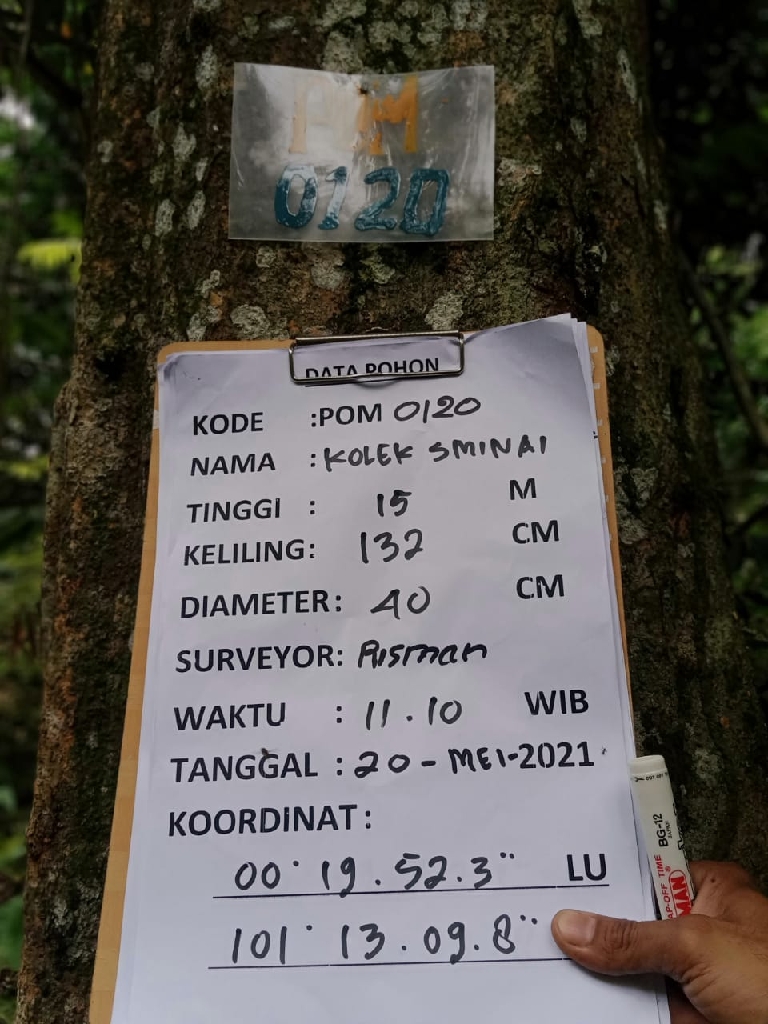 POM
0120
DATA POHON
KODE :POM 0120
NAMA : KOLEK SMINAI
TINGGI : 15 M
KELILING: 132 CM
DIAMETER: 40 CM
SURVEYOR: Risman
WAKTU : 11.10 WIB
TANGGAL : 20 - MEI-2021
KOORDINAT:
00° 19.52.3" LU
101° 13.09.8"
BG-12